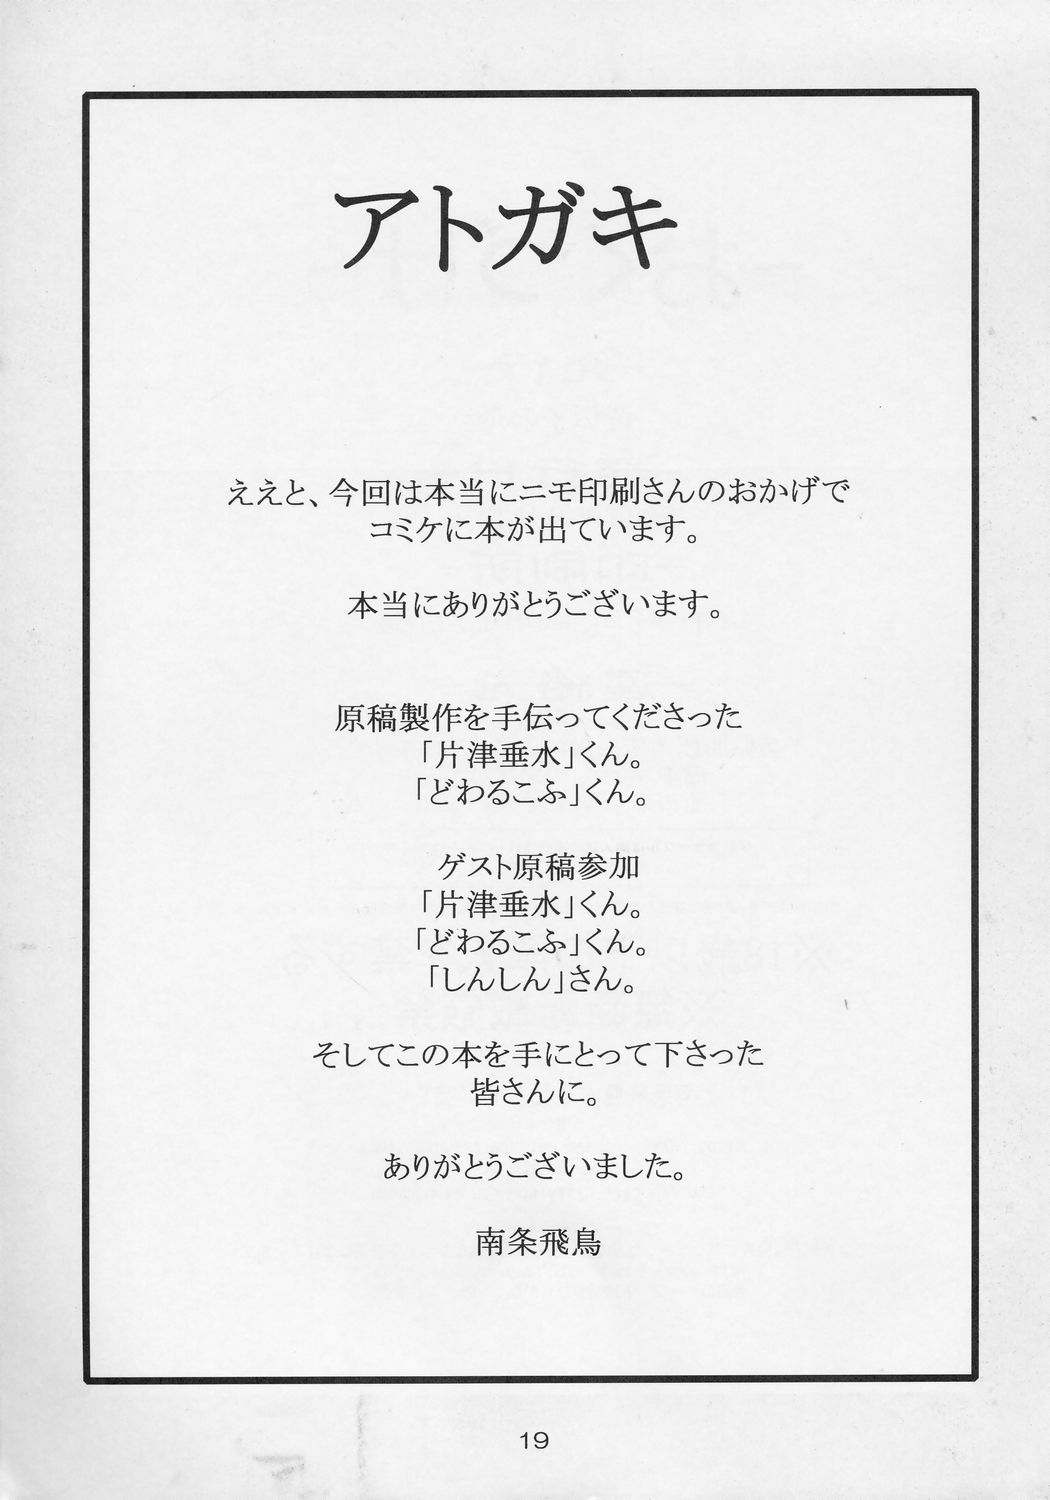 アトガキ
ええと、今回は本当にニモ印刷さんのおかげで
コミケに本が出ています。
本当にありがとうございます。
原稿製作を手伝ってくださった
「片津垂水」くん。
「どわるこふ」くん。
ゲスト原稿参加
「片津垂水」くん。
「どわるこふ」くん。
「しんしん」さん。
そしてこの本を手にとって下さった
皆さんに。
ありがとうございました。
南条飛鳥
19